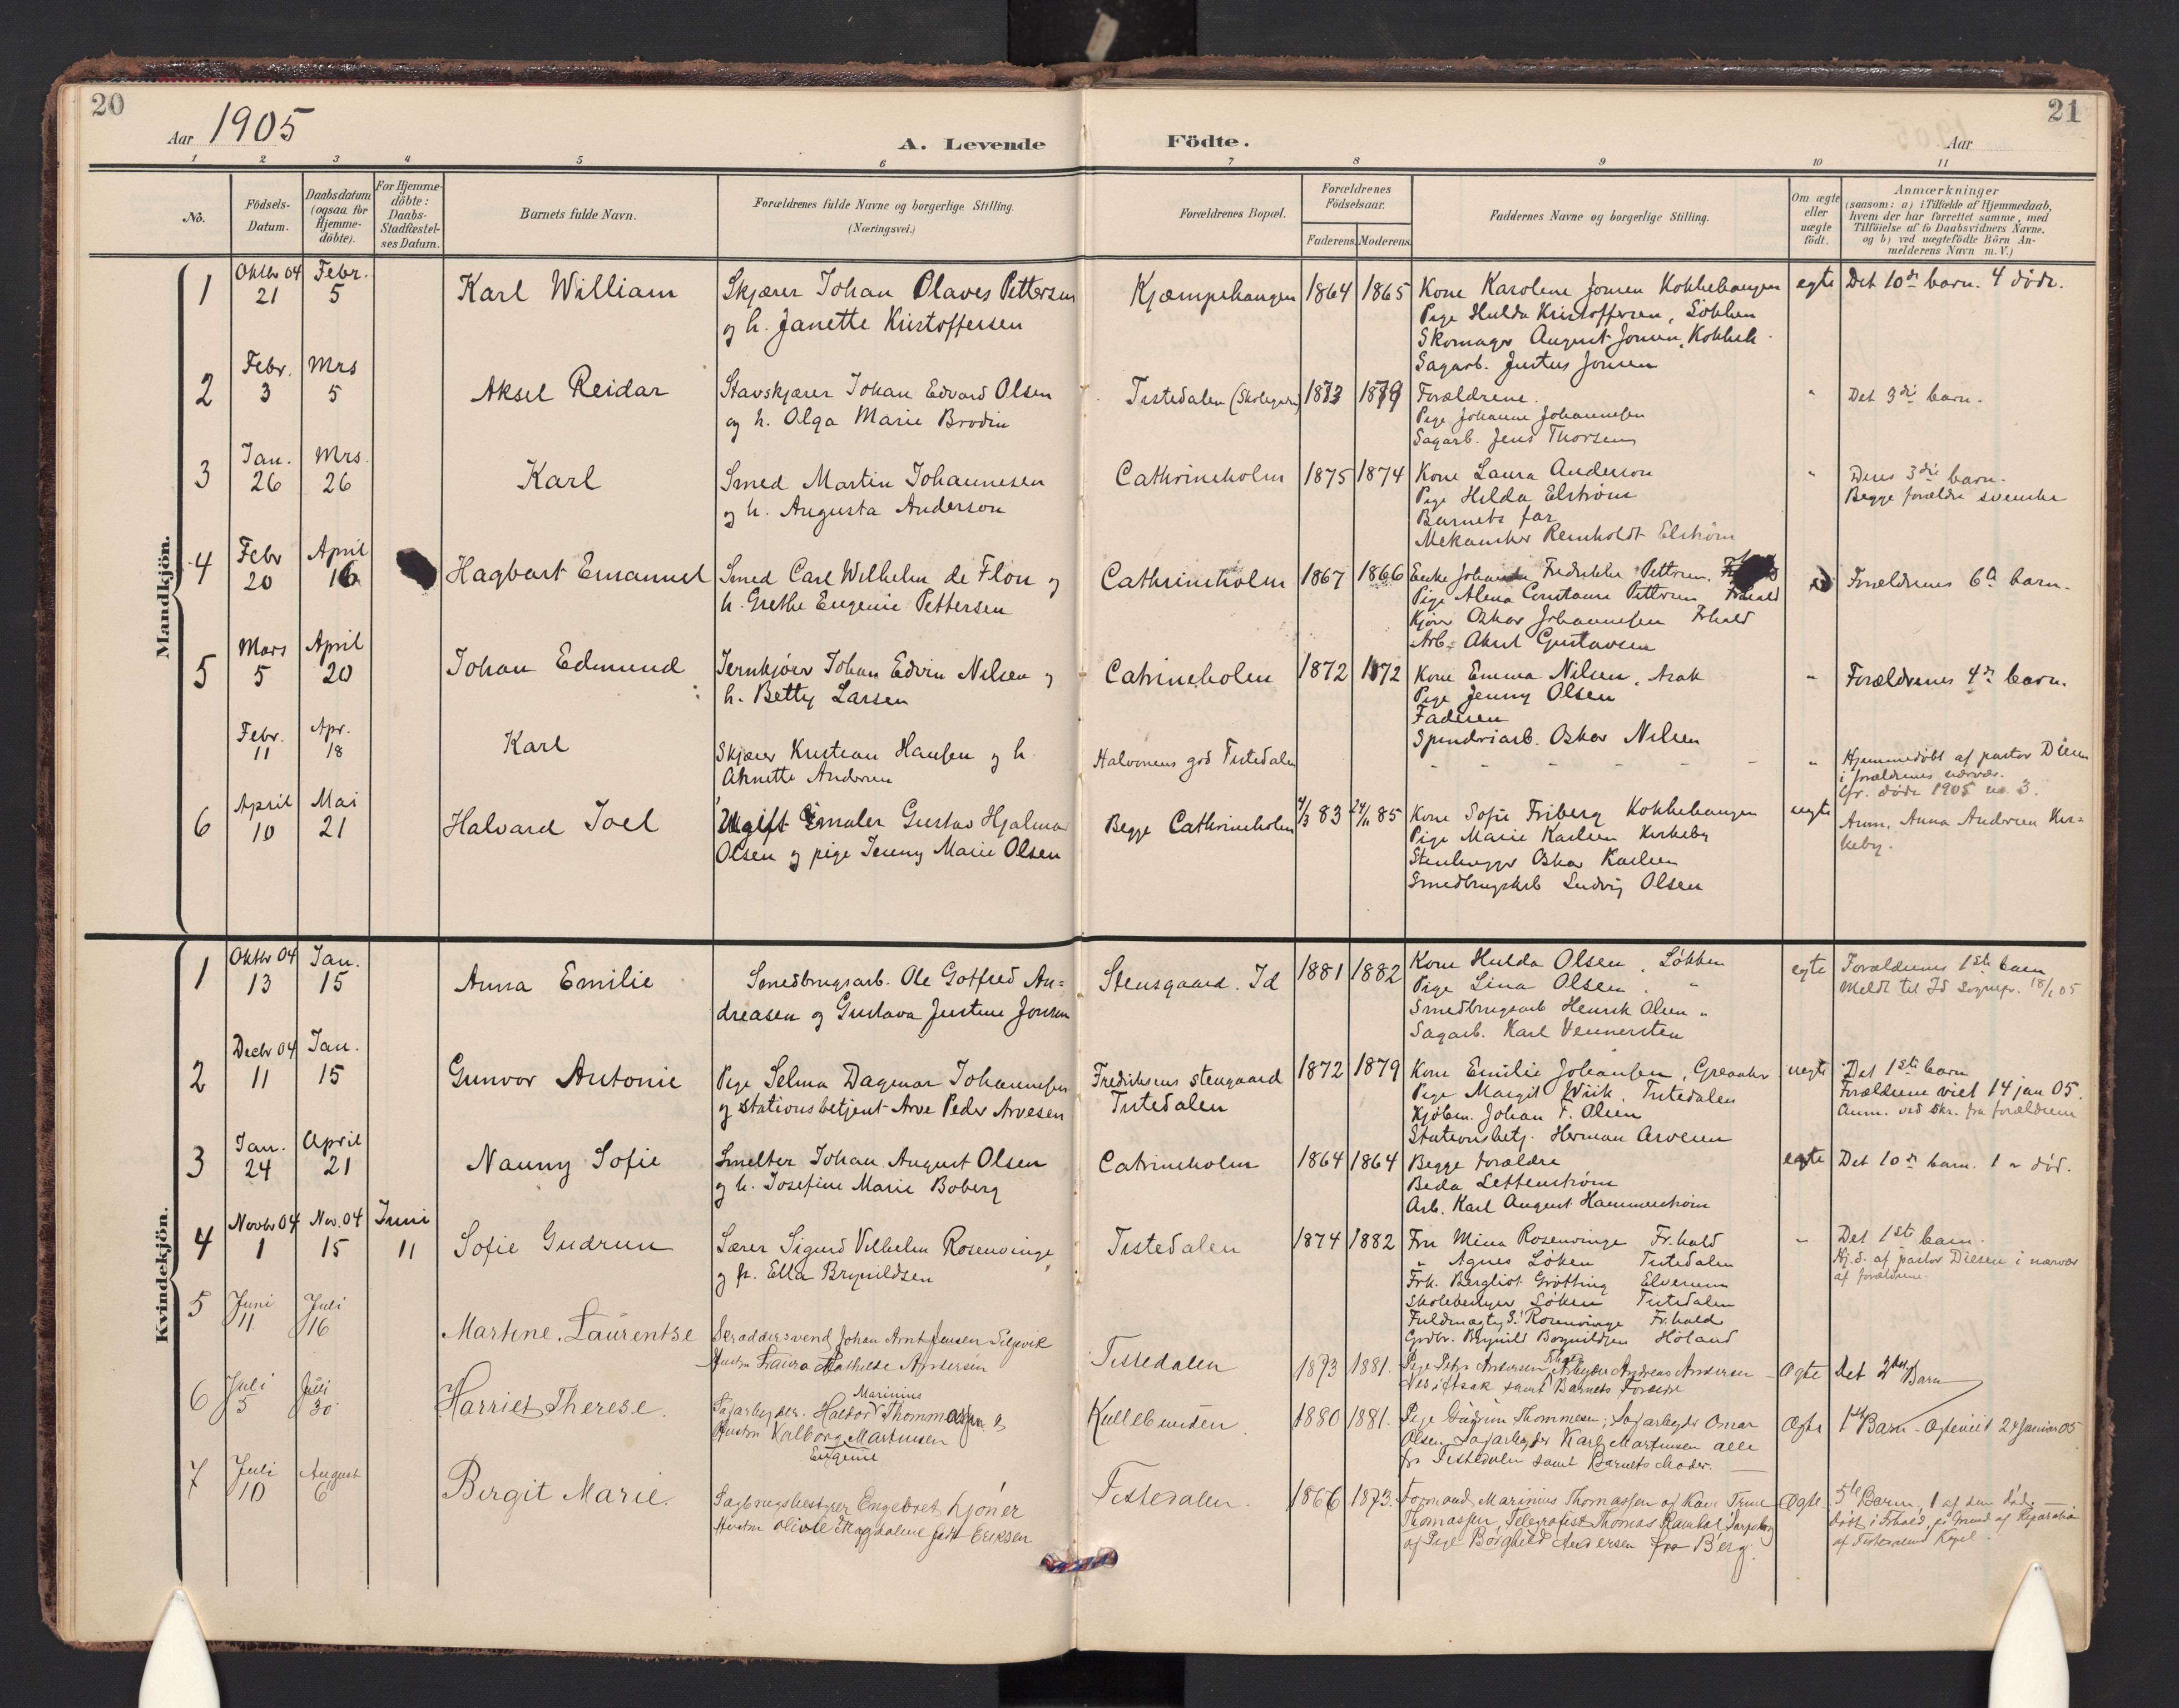 20
21
Aar 1905
A. Levende Födte.
Aar
1 2 3 4 5 6 7 8 9 10 11
No.
Födsels-Datum.
Daabsdatum (ogsaa for Hjemmedöbte).
For Hjemmedöbte: Daabs-Stadfæstelses Datum.
Barnets fulde Navn.
Forældrenes fulde Navne og borgerlige Stilling.
(Næringsvei.)
Forældrenes Bopæl.
Forældrenes Födselsaar.
Faderens. Moderens.
Faddernes Navne og borgerlige Stilling.
Om ægte eller uægte födt.
Anmærkninger
(saasom: a) i Tilfælde af Hjemmedaab,
hvem der har forrettet samme, med
Tilföielse af to Daabsvidners Navne,
og b) ved uægtefödte Börn Anmelderens Navn m.V.)
Mandkjön.
1
Oktbr 04 21
Febr. 5
Karl William
Skjærer Johan Olaves Pettersen
og h. Janette Kristoffersen
Kjæmpehaugen
1864 1865
Kone Karolene Jonsen Kokkehaugen
Pige Hulda Kristoffersen, Løkken
Skomager August Jonsen, Kokkeh.
Sagarb. Justus Jonsen
egte
Det 10de barn. 4 døde.
2
Febr. 3
Mrs 5
Aksel Reidar
Stavskjærer Johan Edvard Olsen
og h. Olga Marie Brodin
Tistedalen
1873 1879
Forældrene.
Pige Johanne Johannesen
Sagarb. Jens Thorsen
"
Det 3die barn.
3
Jan. 26
Mrs. 26
Karl
Smed Martin Johannesen
og h. Augusta Anderson
Cathrineholm
1875 1874
Kone Laura Anderson
Pige Hilda Elstrøm
Barnets far
Mekaniker Reinholdt Elstrøm
"
Deres 3die barn.
Begge forældre svenske
4
Febr 20
April 16
Hagbart Emanuel
Smed Carl Wilhelm de Flon og
h. Grethe Eugenie Pettersen
Cathrineholm
1867 1866
Enke Johanne Fredrikke Pettersen,
Pige Alena Constanse Pettersen Frhald
Kjører Oskar Johannesen Frhald
Arb. Aksel Gustavsen
Forældrenes 6te barn.
5
Mars 5
April 20
Johan Edmund
Jernkjører Johan Edvin Nilsen og
h. Betty Larsen
Catrineholm
1872 1872
Kone Emma Nilsen, Arak
Pige Jenny Olsen
Faderen
Spinderiarb. Oskar Nilsen
"
Forældrenes 4de barn.
Febr. 11
Apr. 18
Karl
Skjærer Kristian Hansen og h.
Agnette Andersen
Halvorsens grd Tistedalen
- - - - - -
"
Hjemmedøbt af pastor Diesen
i forældrenes nærvær.
cfr. døde 1905 no. 3.
6
April 10
Mai 21
Halvard Joel
Ugift Emaler Gustav Hjalmar
Olsen og pige Jenny Marie Olsen
Begge Cathrineholm
4/3 83 24/11 85
Kone Sofie Friberg Kokkehaugen
Pige Marie Karlsen Kirkeby
Stenhugger Oskar Karlsen
Smedbrugsarb Ludvig Olsen
uegte
Anm. Anna Andersen Kir=
keby.
Kvindekjön.
1
Oktbr 04 13
Jan. 15
Anna Emilie
Smedbrugsarb. Ole Gotfred An=
dreasen og Gustava Justine Jonsen
Stensgaard. Id
1881 1882
Kone Hulda Olsen, Løkken
Pige Lina Olsen. "
Smedbrugsarb Henrik Olsen "
Sagarb. Karl Vennersten
egte
Forældrenes 1ste barn
Meldt til Id Sognepr. 18/1 05
2
Decbr 04 11
Jan. 15
Gunvor Antonie
Pige Selma Dagmar Johannesen
og Stationsbetjent Arve Peder Arvesen
Fredriksens stengaard
Tistedalen
1872 1879
Kone Emilie Johansen, Greaaker
Pige Margit Wiik, Tistedalen
Kjøbm. Johan F. Olsen
Stationsbetj. Herman Arvesen
uegte
Det 1ste barn
Forældrene viet 14 jan 05.
Anm. ved skr. fra forældrene
3
Jan. 24
April 21
Nanny Sofie
Smelter Johan August Olsen
og h. Josefine Marie Boberg
Catrineholm
1864 1864
Begge forældre
Beda Settenstrøm
Arb. Karl August Hammerstrøm
egte
Det 10de barn. 1 er død.
4
Novbr 04 1
Nov. 04 15
Juni 11
Sofie Gudrun
Lærer Sigurd Vilhelm Rosenvinge
og fr. Ella Brynildsen
Tistedalen
1874 1882
Fru Mina Rosenvinge Fr.hald
" Agnes Løken Tistedalen
Frk. Bergliot Grøtting Elverum
Skolebestyrer Løken Tistedalen
Fuldmægtig S. Rosenvinge Fr.hald
Grdbr. Brynild Brynildsen Høland
"
Det 1ste barn.
Hj.d. af pastor Diesen i nærvær
af forældrene.
5
Juni 11
Juli 16
Martine. Laurentse
Skræddersvend Johan Arnt Jensen
Hustru Laura Mathilde Andersen
Tistedalen
1873 1881.
Pige Petra Andersen Arbeider Andreas Andersen
samt Barnets Forældre
Ægte
Det 2det Barn
6
Juli 5
Juli 30
Harriet Therese.
Sagarbeider. Haldor Marinius Thommassen og
Hustru Valborg Eugenie Martinsen
Kullebunden
1880 1881.
Pige Gudrun Thommesen; Sagarbeider Omar
Olsen, Sagarbeider Karl Martinsen alle
fra Tistedalen samt Barnets Moder.
Ægte
1ste Barn - Egteviet 24 Januar 05
7
Juli 10
August 6
Birgit Marie.
Sagbrugsbestyrer Engebret Kjøner
Hustru Olivie Magdalene født Eriksen
Tistedalen.
1866 1873.
Formand Marinius Thomassen og Kone Trine
Thomassen, Telegrafist Thomas Ramdal, Sarpsborg
og Pige Borghild Andersen fra Berg.
Ægte
5te Barn, 1 af dem død.
døbt i Frhald, på Grund af Reparation
af Tistedalens Kapel